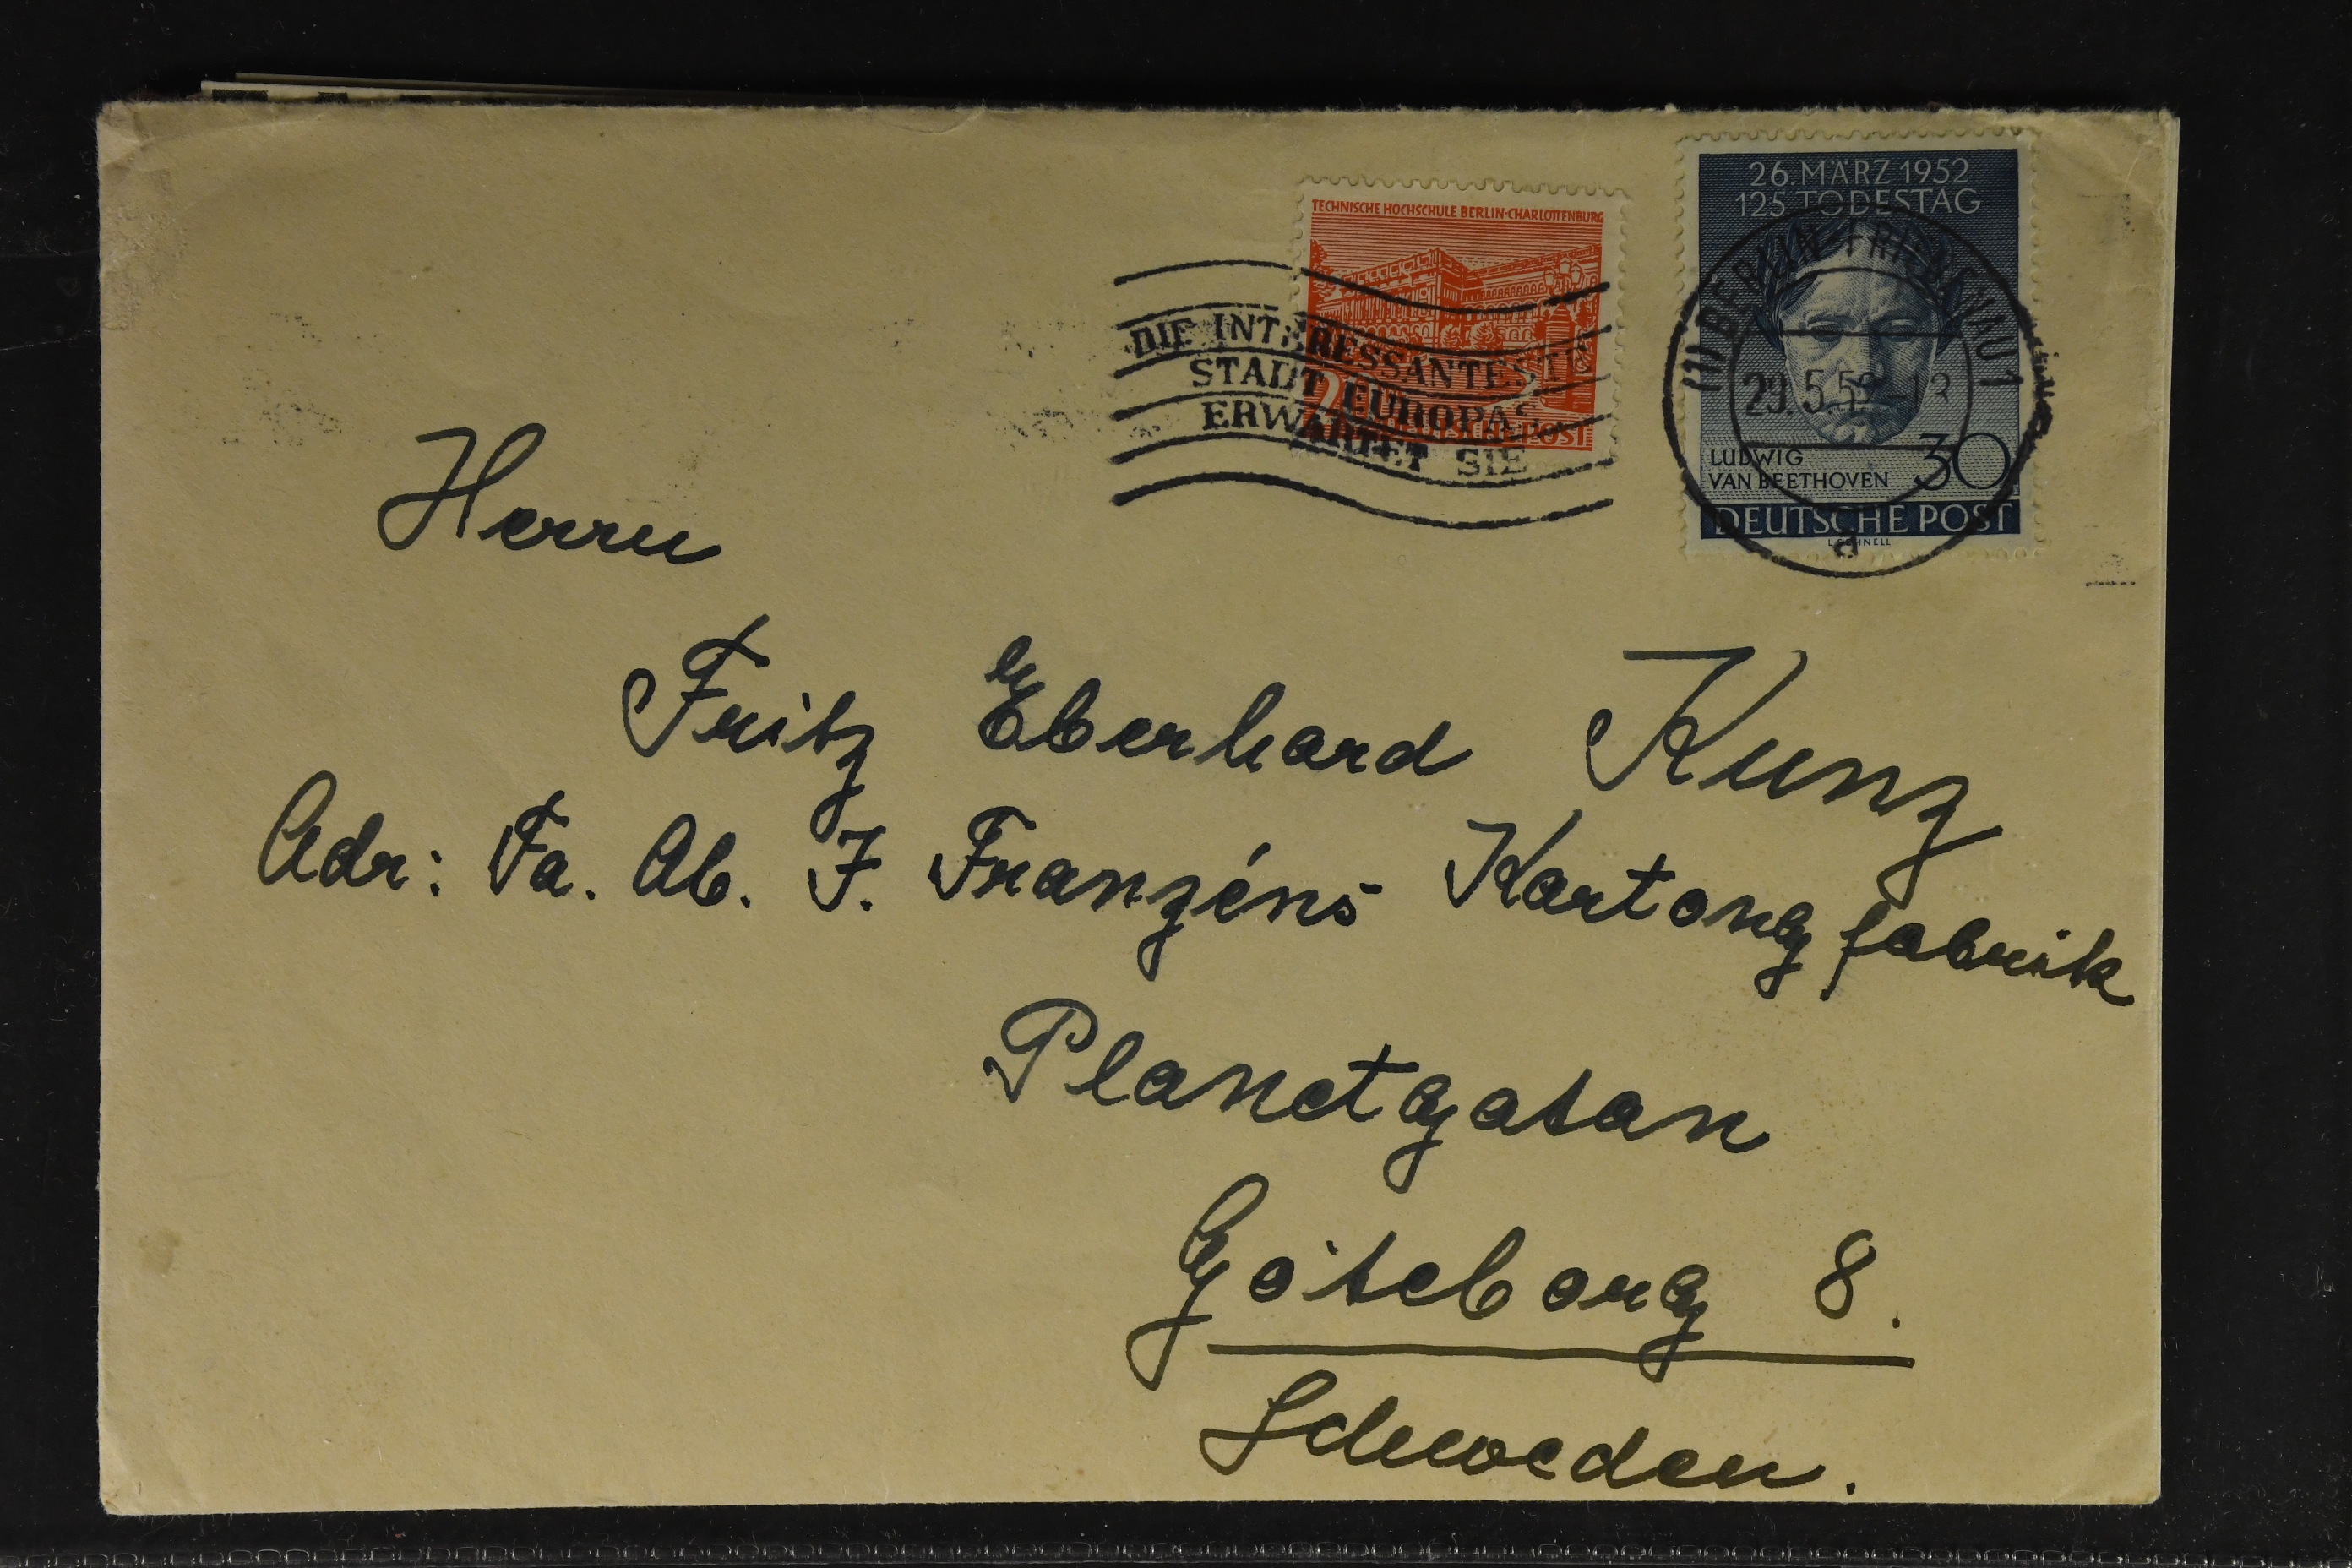 26. MÄRZ 1952
125. TODESTAG
LUDWIG
VAN BEETHOVEN 30
DEUTSCHE POST
L. SCHNELL
(1) BERLIN-FRIEDENAU 1
29.5.52
a
TECHNISCHE HOCHSCHULE BERLIN-CHARLOTTENBURG
DEUTSCHE POST
DIE INTERESSANTESTE
STADT EUROPAS
ERWARTET SIE
Herrn
Fritz Eberhard Kunz
Adr: Fa. Ab. F. Franzéns Kartongfabrik
Planetgatan
Göteborg 8.
Schweden.